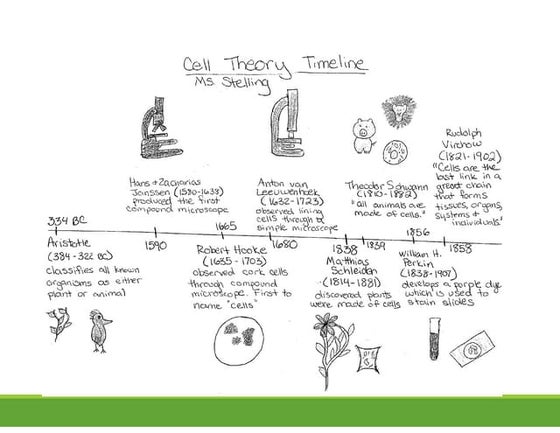 Cell Theory Timeline
Ms Stelling
Hans & Zacharias
Janssen (1580-1638)
produced the first
compound microscope
Anton van
Leeuwenhoek
(1632-1723)
observed living
cells through a
simple microscope
Theodor Schwann
(1810-1882)
"all animals are
made of cells."
Rudolph
Virchow
(1821-1902)
"Cells are the
last link in a
great chain
that forms
tissues, organs,
systems &
individuals."
334 BC
1590
1665
1680
1838
1839
1856
1858
Aristotle
(384-322 BC)
classifies all known
organisms as either
plant or animal
Robert Hooke
(1635-1703)
observed cork cells
through compound
microscope. First to
name "cells"
Matthias
Schleiden
(1814-1881)
discovered plants
were made of cells
William H.
Perkin
(1838-1907)
develops a purple dye
which is used to
stain slides